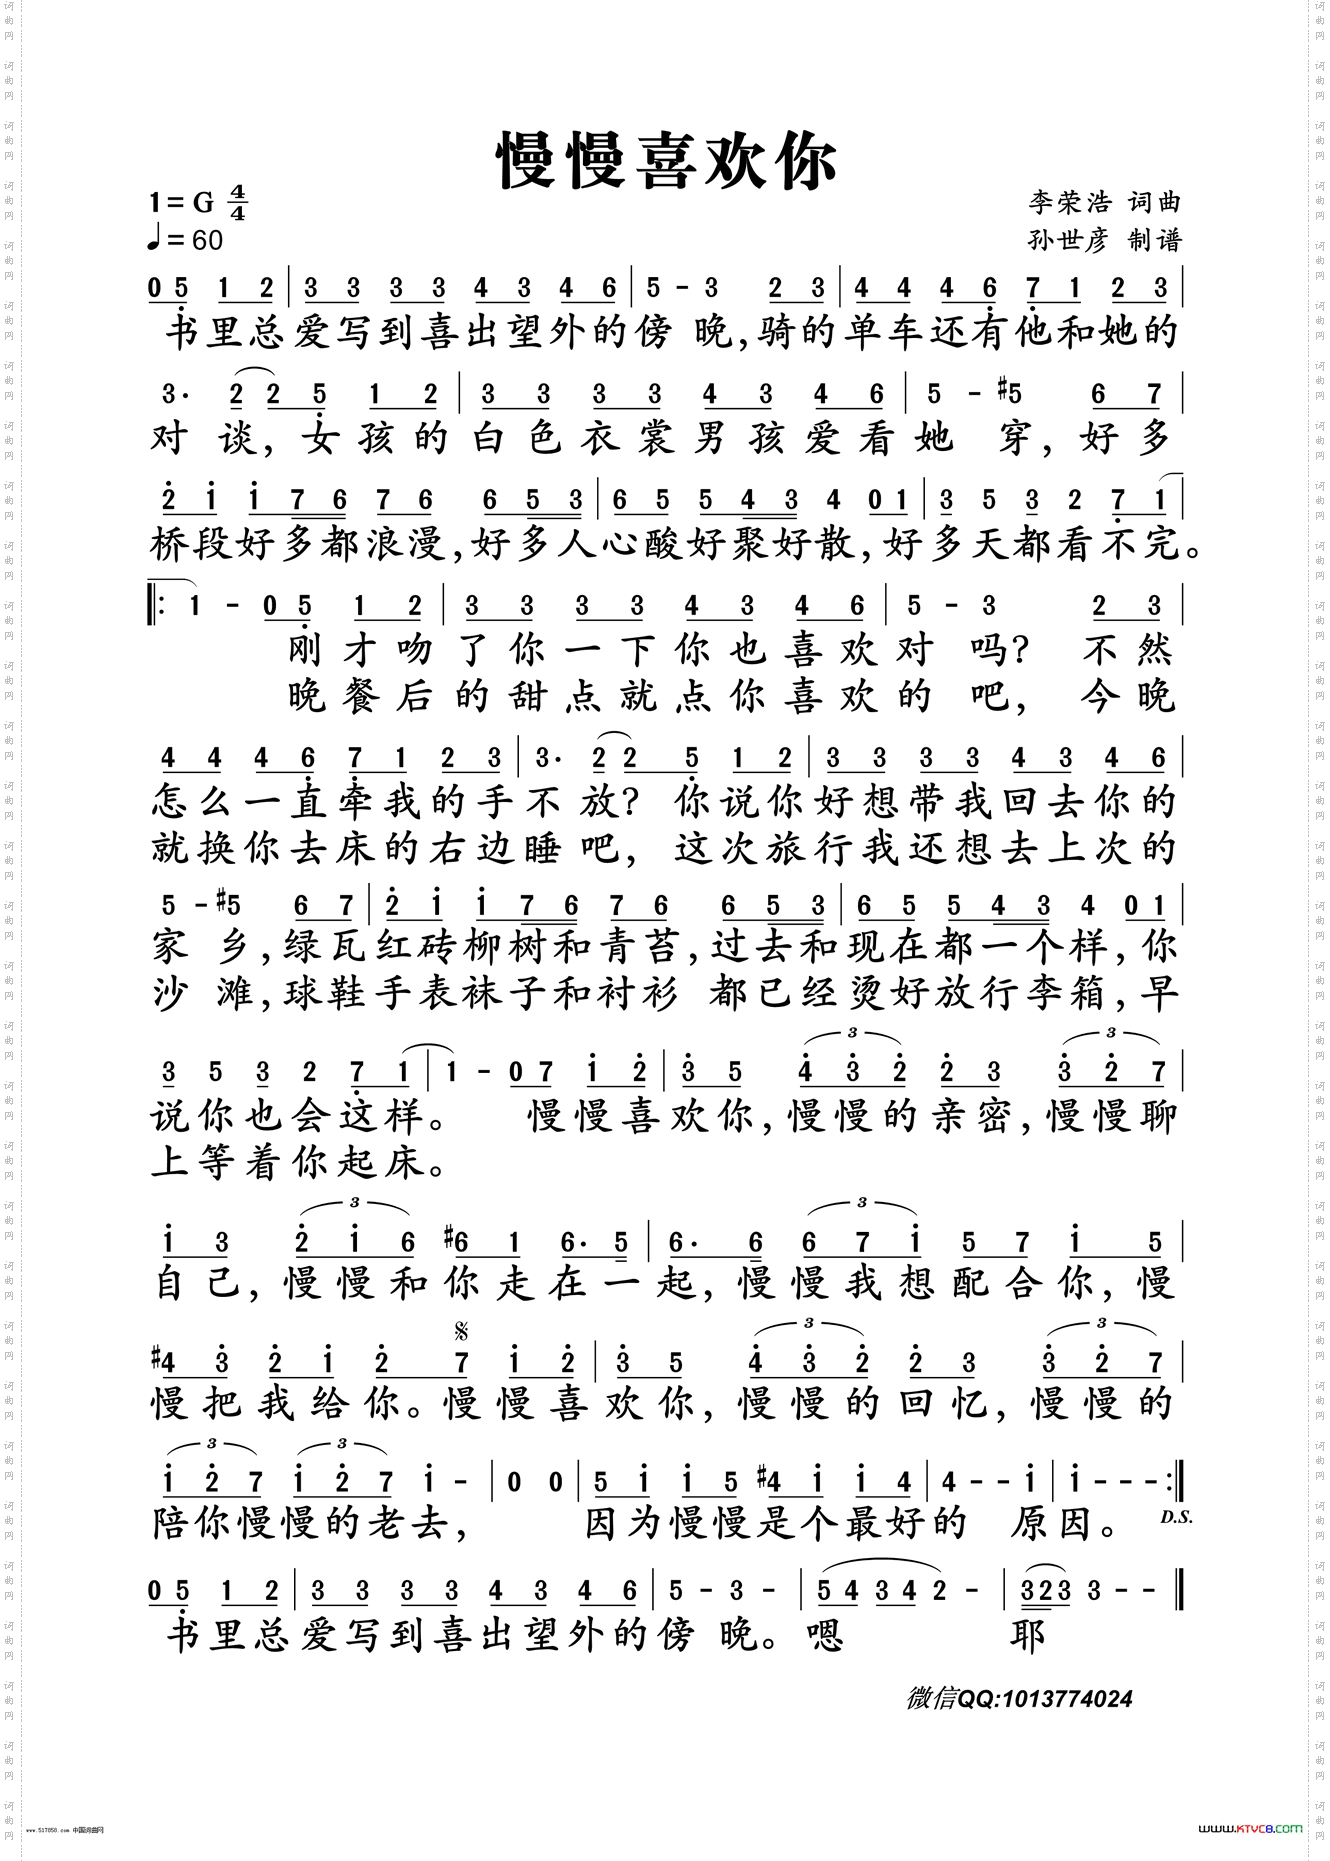 慢慢喜欢你
1= G 4/4
李荣浩 词曲
♩= 60
孙世彦 制谱
0 5 1 2 | 3 3 3 3 4 3 4 6 | 5 - 3 2 3 | 4 4 4 6 7 1 2 3 |
书里总爱写到喜出望外的傍 晚,骑的单车还有他和她的
3· 2 2 5 1 2 | 3 3 3 3 4 3 4 6 | 5 - #5 6 7 |
对 谈,女孩的白色衣裳男孩爱看她 穿,好多
2 1 1 7 6 7 6 6 5 3 | 6 5 5 4 3 4 0 1 | 3 5 3 2 7 1 |
桥段好多都浪漫,好多人心酸好聚好散,好多天都看不完。
|: 1 - 0 5 1 2 | 3 3 3 3 4 3 4 6 | 5 - 3 2 3 |
刚才吻了你一下你也喜欢对 吗? 不然
晚餐后的甜点就点你喜欢的 吧, 今晚
4 4 4 6 7 1 2 3 | 3· 2 2 5 1 2 | 3 3 3 3 4 3 4 6 |
怎么一直牵我的手不 放? 你说你好想带我回去你的
就换你去床的右边睡 吧, 这次旅行我还想去上次的
5 - #5 6 7 | 2 1 1 7 6 7 6 6 5 3 | 6 5 5 4 3 4 0 1 |
家 乡,绿瓦红砖柳树和青苔,过去和现在都一个样,你
沙 滩,球鞋手表袜子和衬衫 都已经烫好放行李箱,早
3 5 3 2 7 1 | 1 - 0 7 1 2 | 3 5 4 3 2 2 3 3 2 7 |
说你也会这样。 慢慢喜欢你,慢慢的亲密,慢慢聊
上等着你起床。
1 3 2 1 6 #6 1 6· 5 | 6· 6 6 7 1 5 7 1 5 |
自己,慢慢和你走在一起,慢慢我想配合你,慢
#4 3 2 1 2 7 1 2 | 3 5 4 3 2 2 3 3 2 7 |
慢把我给你。慢慢喜欢你,慢慢的回忆,慢慢的
1 2 7 1 2 7 1 - | 0 0 | 5 1 1 5 #4 1 1 4 | 4 - - 1 | 1 - - - :|
陪你慢慢的老去, 因为慢慢是个最好的 原因。 D.S.
0 5 1 2 | 3 3 3 3 4 3 4 6 | 5 - 3 - | 5 4 3 4 2 - | 3 2 3 3 - - |
书里总爱写到喜出望外的傍 晚。嗯 耶
微信QQ:1013774024
www.517858.com 中国词曲网
www.KTVC8.com